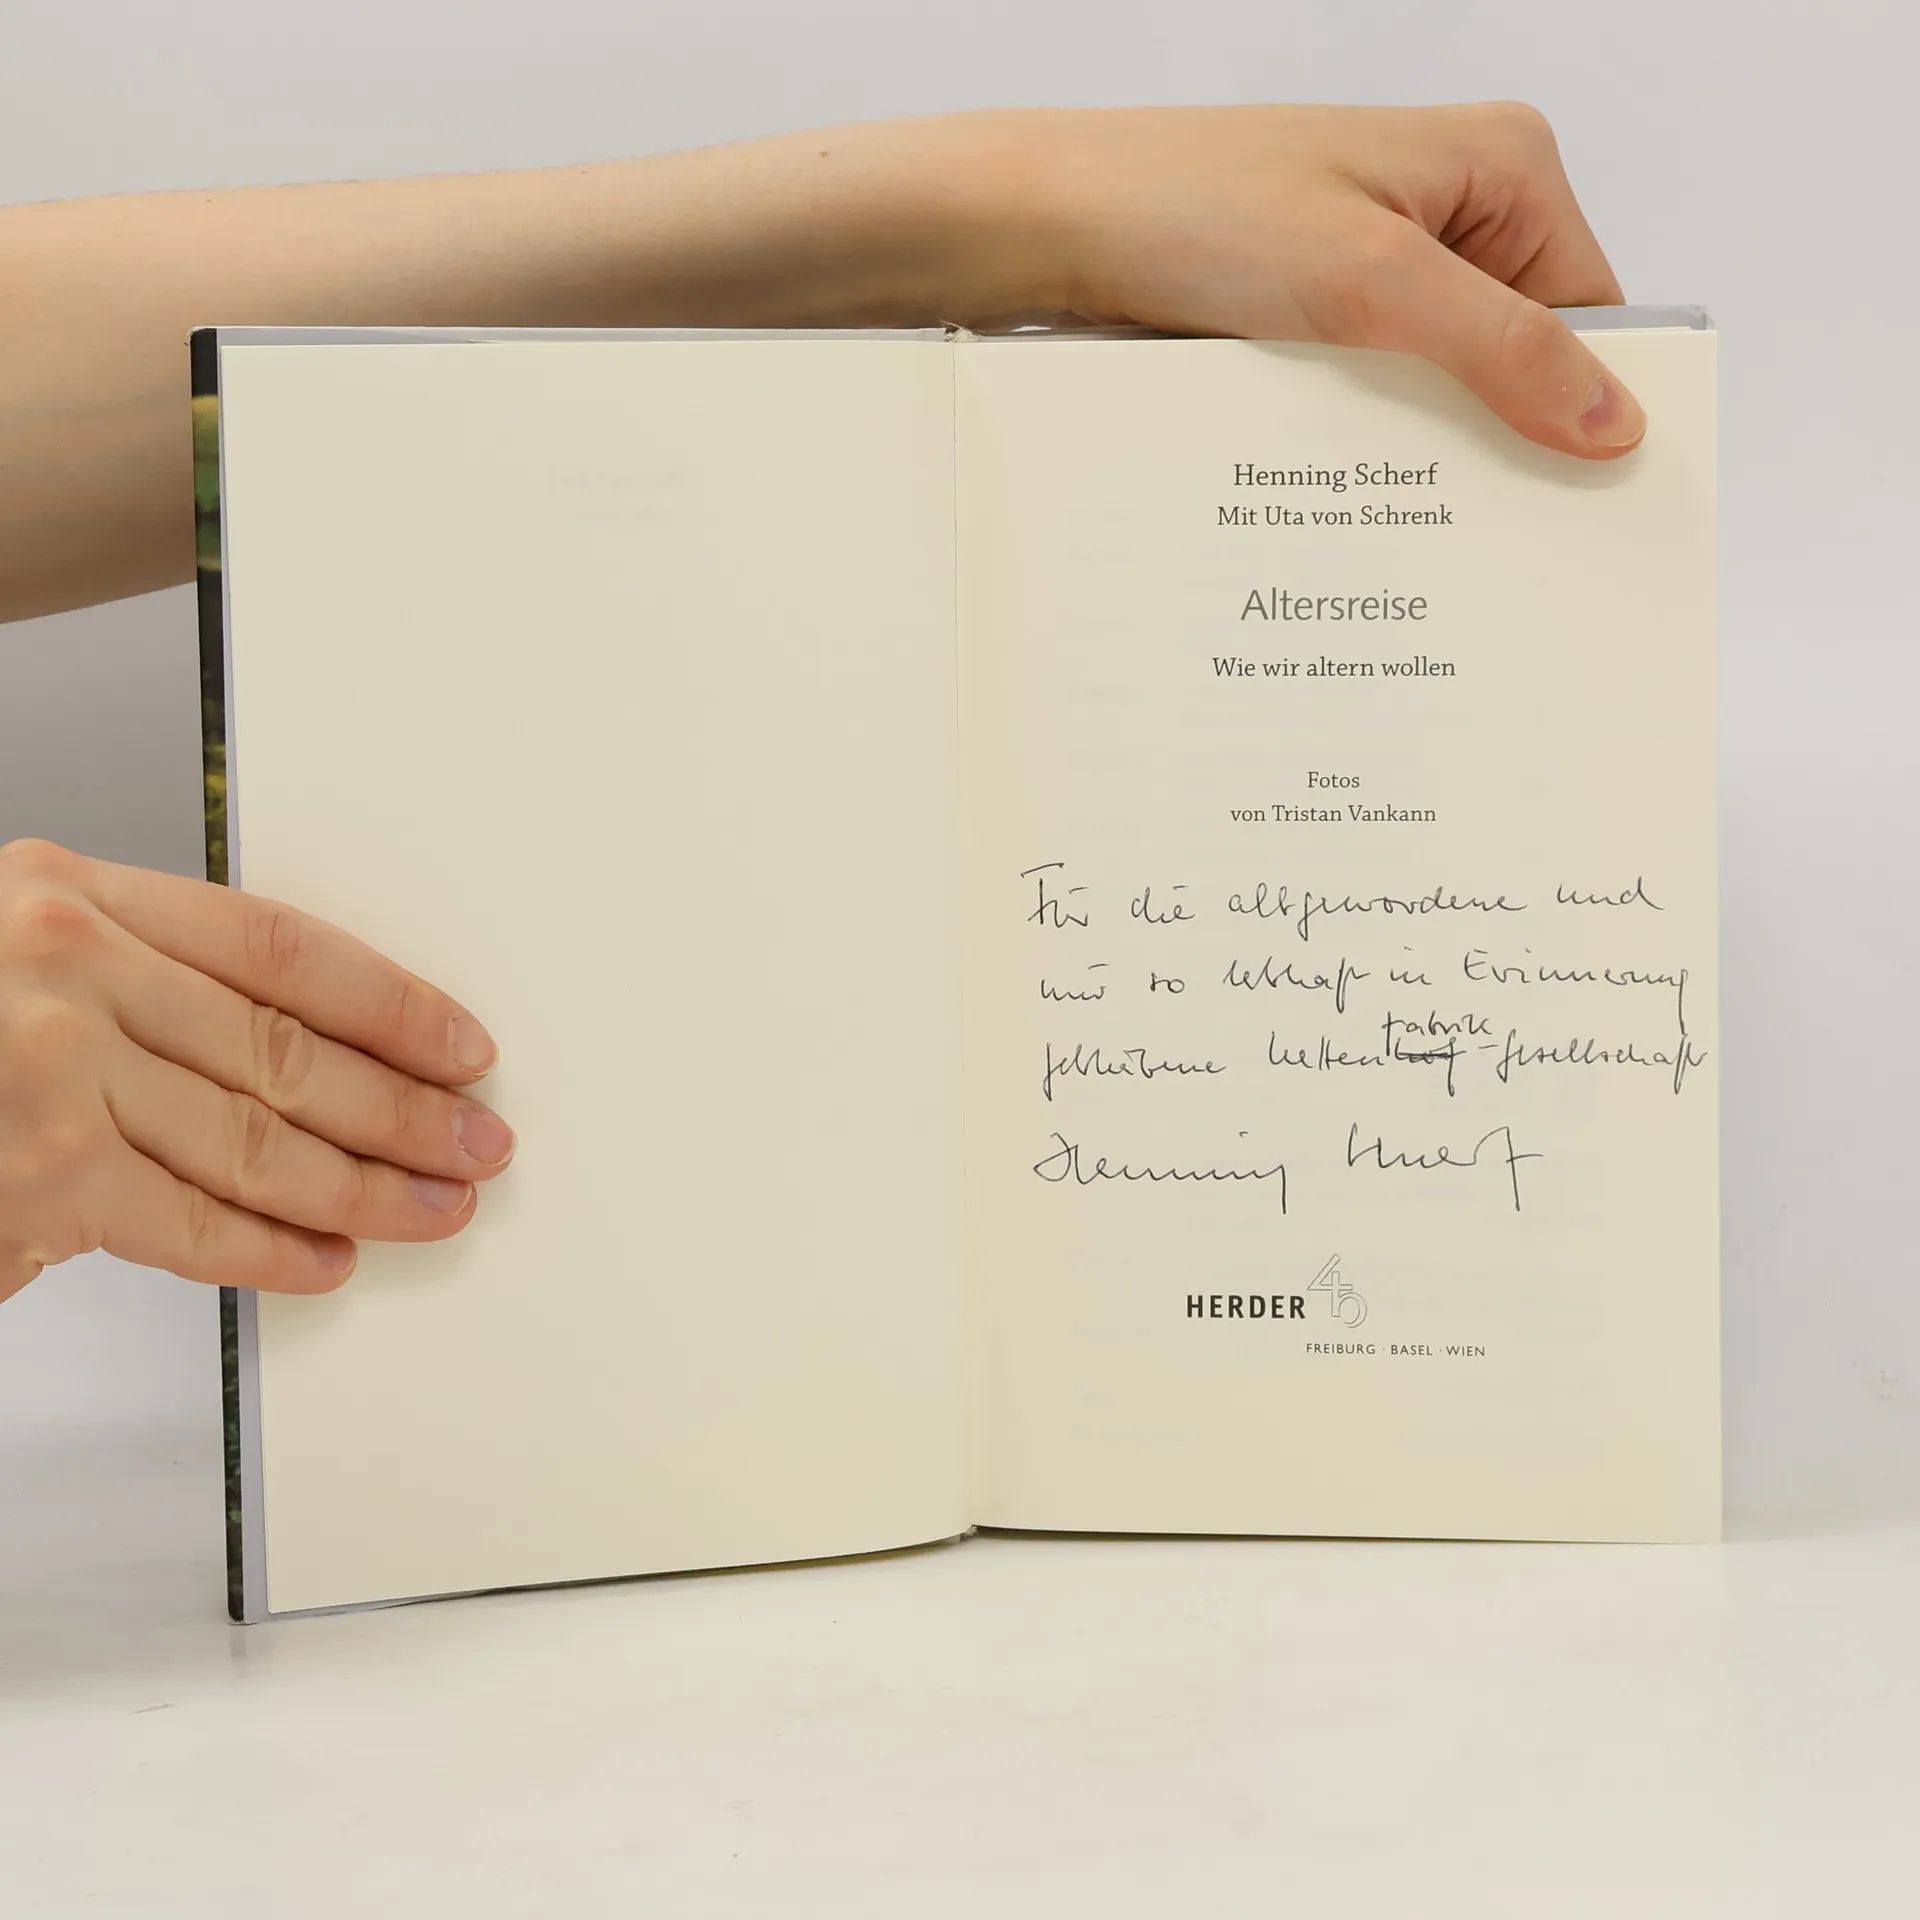 Henning Scherf
Mit Uta von Schrenk
Altersreise
Wie wir altern wollen
Fotos
von Tristan Vankann
Für die altgewordene und
mir so lebhaft in Erinnerung
gebliebene Ketten Fabrik -Gesellschaft
Henning Scherf
HERDER
FREIBURG · BASEL · WIEN